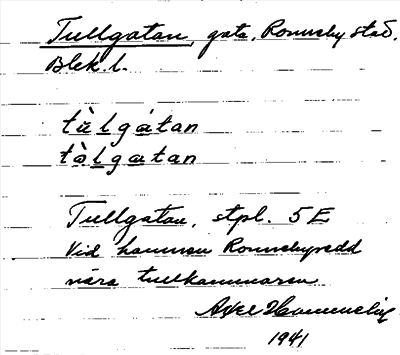 Tullgatan, gata, Ronneby stad,
Blek. l.
tùlgátan
tòlgatan
Tullgatan, stpl. 5E
Vid hamnen Ronnebyredd
nära tullkammaren
Axel
1941